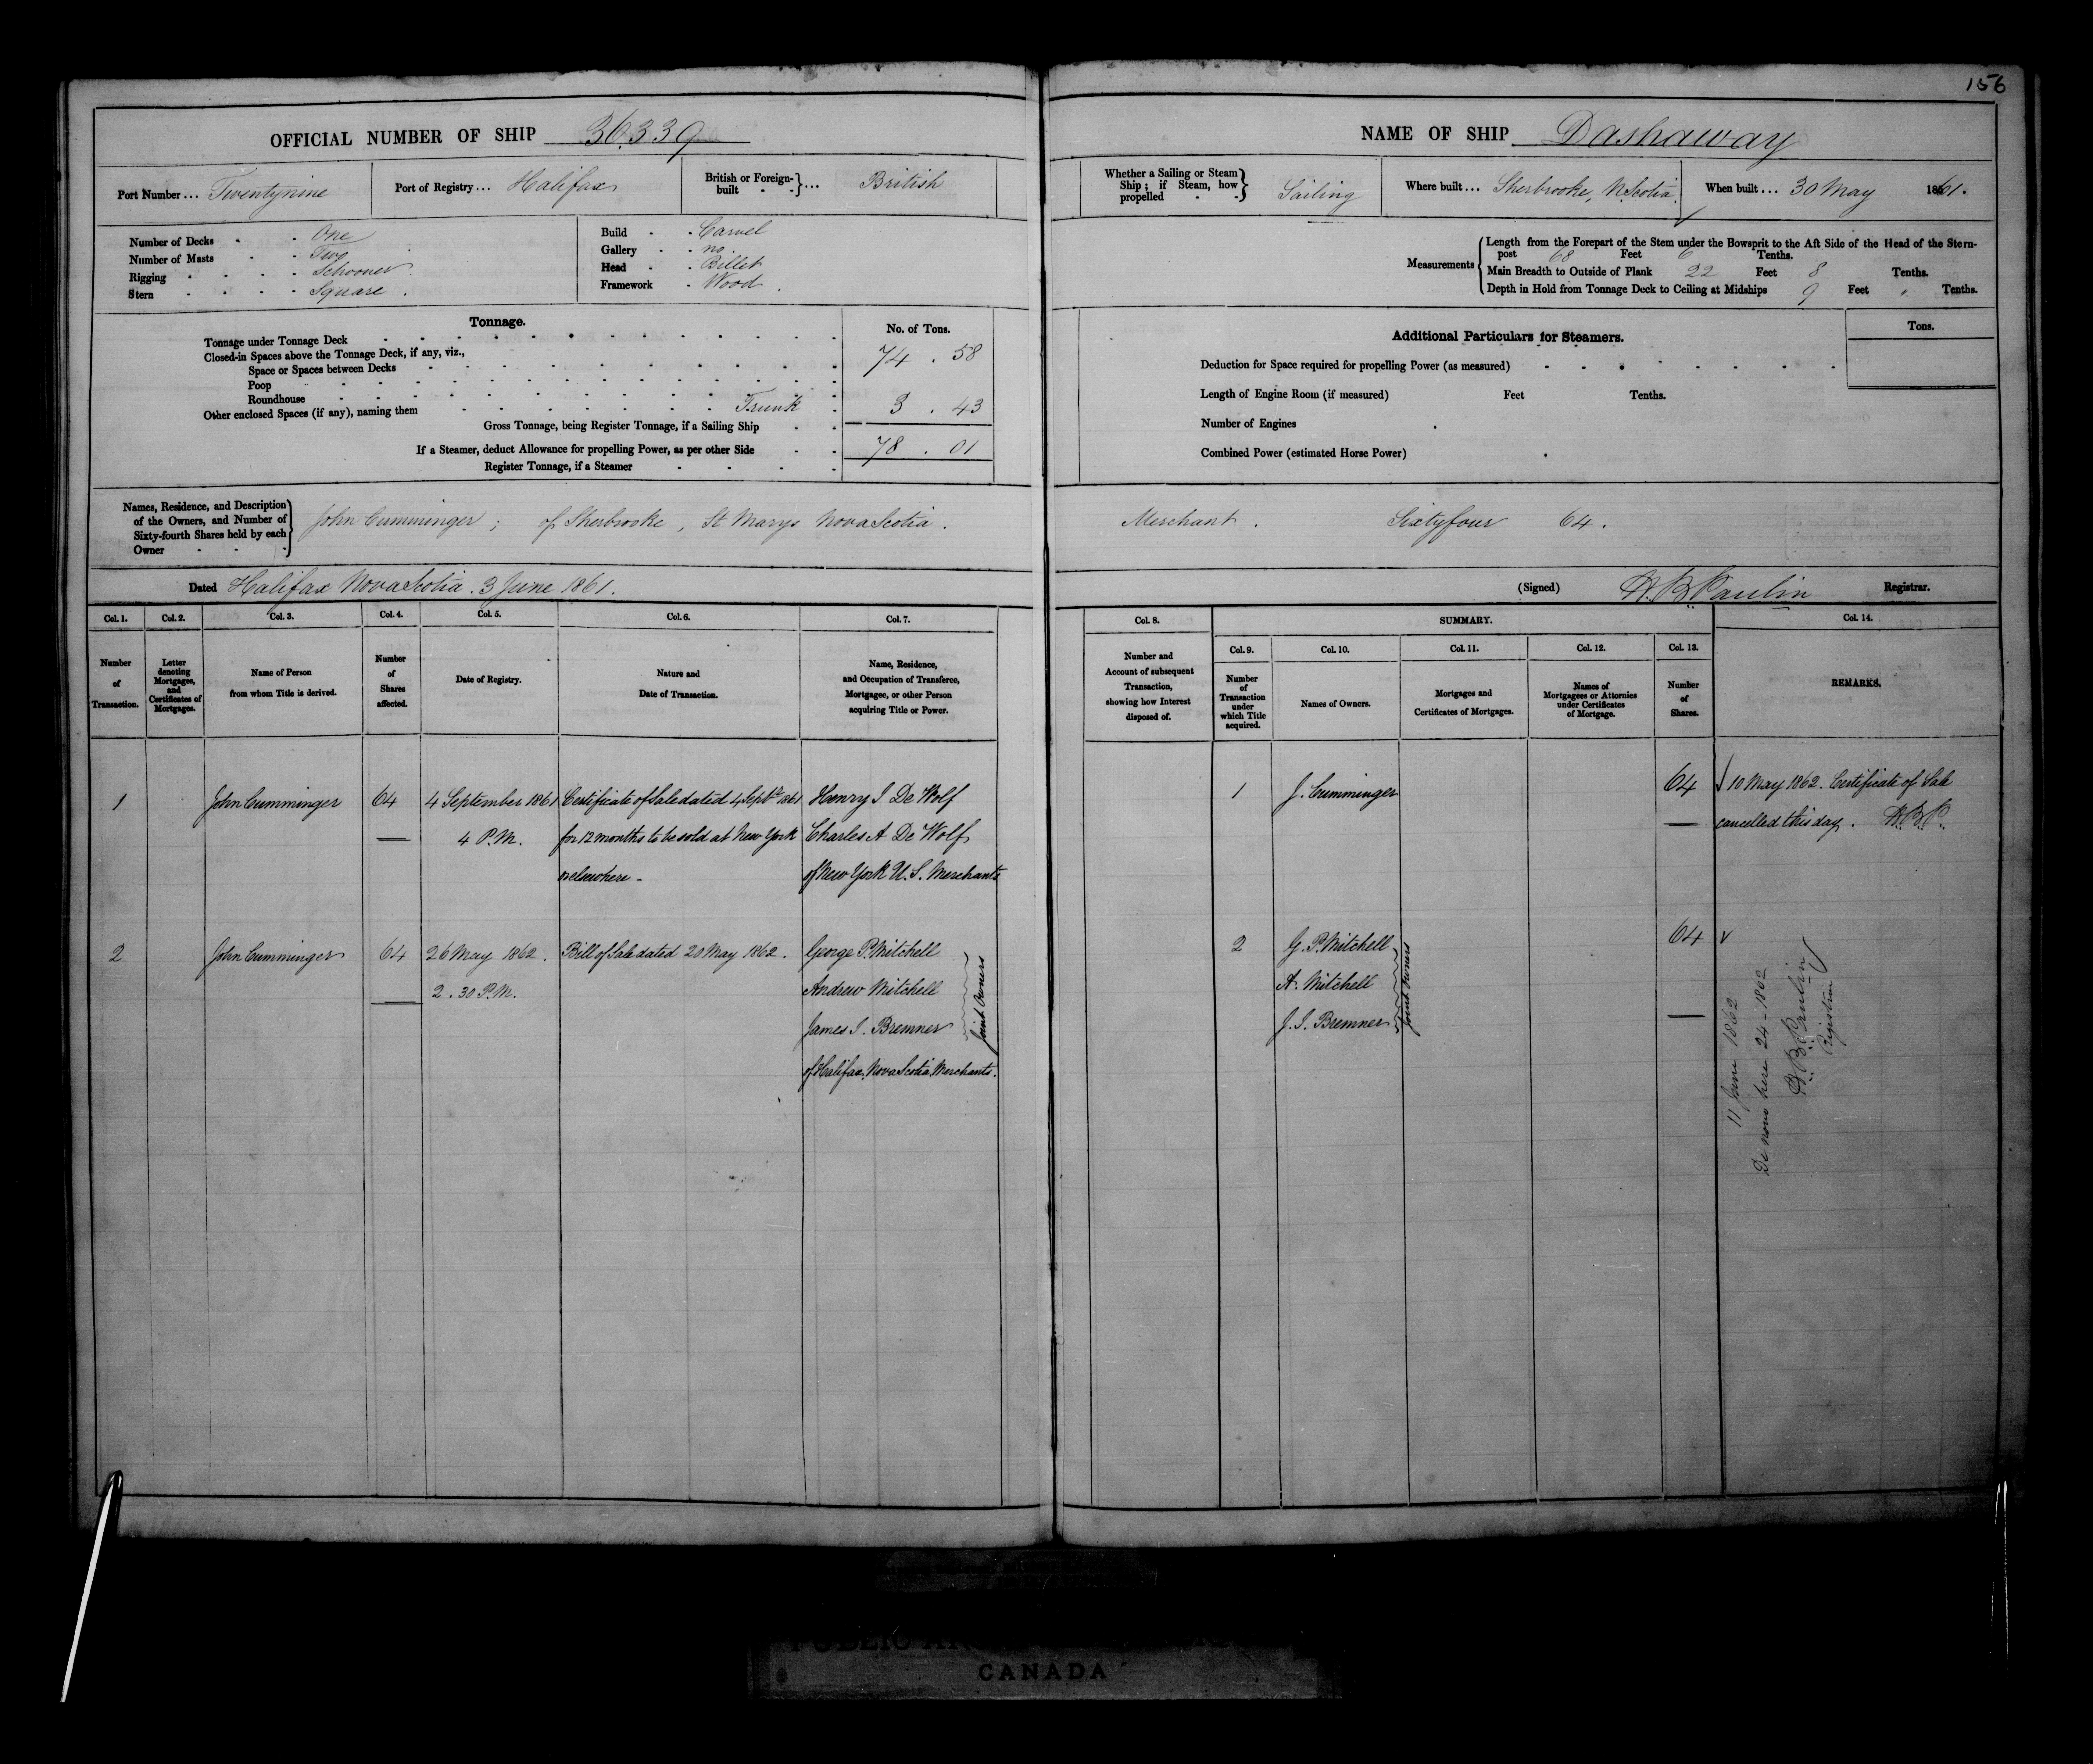 156
OFFICIAL NUMBER OF SHIP 36.339
NAME OF SHIP Dashaway
Port Number ... Twentynine
Port of Registry ... Halifax
British or Foreign-built - - } ... British
Whether a Sailing or Steam Ship; if Steam, how propelled - - } Sailing
Where built ... Sherbrooke, N. Scotia.
When built .... 30 May 1861.
Number of Decks - - One
Number of Masts - - Two
Rigging - - - - Schooner
Stern - - - - Square.
Build - - Carvel
Gallery - - no
Head - - Billet
Framework - Wood.
Measurements
Length from the Forepart of the Stem under the Bowsprit to the Aft Side of the Head of the Stern-
post 68 Feet 6 Tenths.
Main Breadth to Outside of Plank 22 Feet 8 Tenths.
Depth in Hold from Tonnage Deck to Ceiling at Midships 9 Feet " Tenths.
Tonnage.
No. of Tons.
Tonnage under Tonnage Deck 74 . 58
Closed-in Spaces above the Tonnage Deck, if any, viz.,
Space or Spaces between Decks
Poop
Roundhouse
Other enclosed Spaces (if any), naming them Trunk 3 . 43
Gross Tonnage, being Register Tonnage, if a Sailing Ship
If a Steamer, deduct Allowance for propelling Power, as per other Side 78 . 01
Register Tonnage, if a Steamer
Additional Particulars for Steamers.
Tons.
Deduction for Space required for propelling Power (as measured)
Length of Engine Room (if measured) Feet Tenths.
Number of Engines
Combined Power (estimated Horse Power)
Names, Residence, and Description
of the Owners, and Number of
Sixty-fourth Shares held by each
Owner - -
John Cumminger; of Sherbrooke, St Marys Nova Scotia. Merchant. Sixtyfour 64.
Dated Halifax Nova Scotia. 3 June 1861.
(Signed) H. B. Paulin Registrar.
Col. 1.
Number of Transaction.
Col. 2.
Letter denoting Mortgages, and Certificates of Mortgages.
Col. 3.
Name of Person from whom Title is derived.
Col. 4.
Number of Shares affected.
Col. 5.
Date of Registry.
Col. 6.
Nature and Date of Transaction.
Col. 7.
Name, Residence, and Occupation of Transferee, Mortgagee, or other Person acquiring Title or Power.
Col. 8.
Number and Account of subsequent Transaction, showing how Interest disposed of.
SUMMARY.
Col. 9.
Number of Transaction under which Title acquired.
Col. 10.
Names of Owners.
Col. 11.
Mortgages and Certificates of Mortgages.
Col. 12.
Names of Mortgagees or Attornies under Certificates of Mortgage.
Col. 13.
Number of Shares.
Col. 14.
REMARKS.
1 John Cumminger 64 4 September 1861 Certificate of Sale dated 4 Septr 1861 Henry I De Wolf
4 P.M. for 12 months to be sold at New York Charles A De Wolf
or elsewhere - of New York U.S. Merchants
1 J. Cumminger 64 10 May 1862. Certificate of Sale
cancelled this day. H.B.P.
2 John Cumminger 64 26 May 1862. Bill of Sale dated 20 May 1862. George P. Mitchell
2.30 P.M. Andrew Mitchell
James I. Bremner
of Halifax, Nova Scotia, Merchants.
Joint Owners
2 G. P. Mitchell 64
A. Mitchell
J. I. Bremner
Joint Owners
11 June 1862
De novo here 24 - 1862
H. B. Paulin
Registrar
CANADA